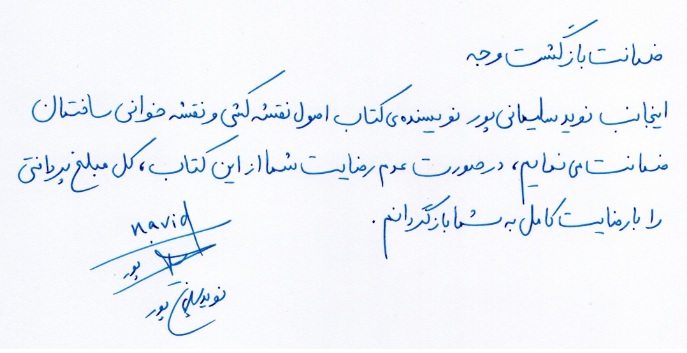 ضمانت بازگشت وجه
اینجانب نوید سلیمانی پور نویسنده‌ی کتاب اصول نقشه کشی و نقشه خوانی ساختمان
ضمانت می نمایم، در صورت عدم رضایت شما از این کتاب، کل مبلغ پرداختی
را با رضایت کامل به شما بازگردانم.
navid
پور
نوید سلیمانی پور